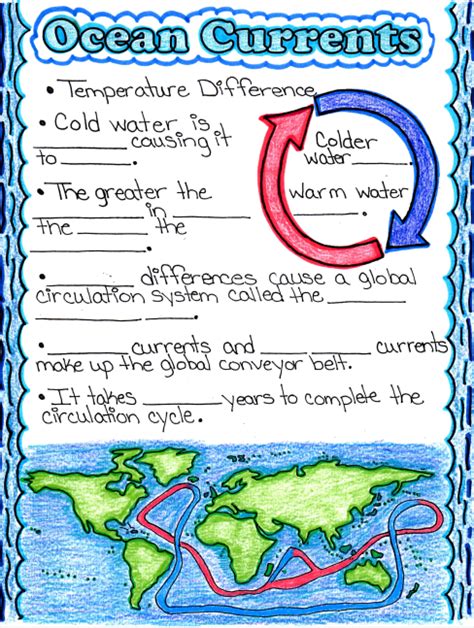 Ocean Currents
• Temperature Difference
• Cold water is
________ causing it
to ________.
Colder
water ______.
• The greater the
________ in ________
the ________ the
________.
warm water
________.
• ________ differences cause a global
circulation system called the ________
________ ________.
• ________ currents and ________ ________ currents
make up the global conveyor belt.
• It takes ________ years to complete the
circulation cycle.